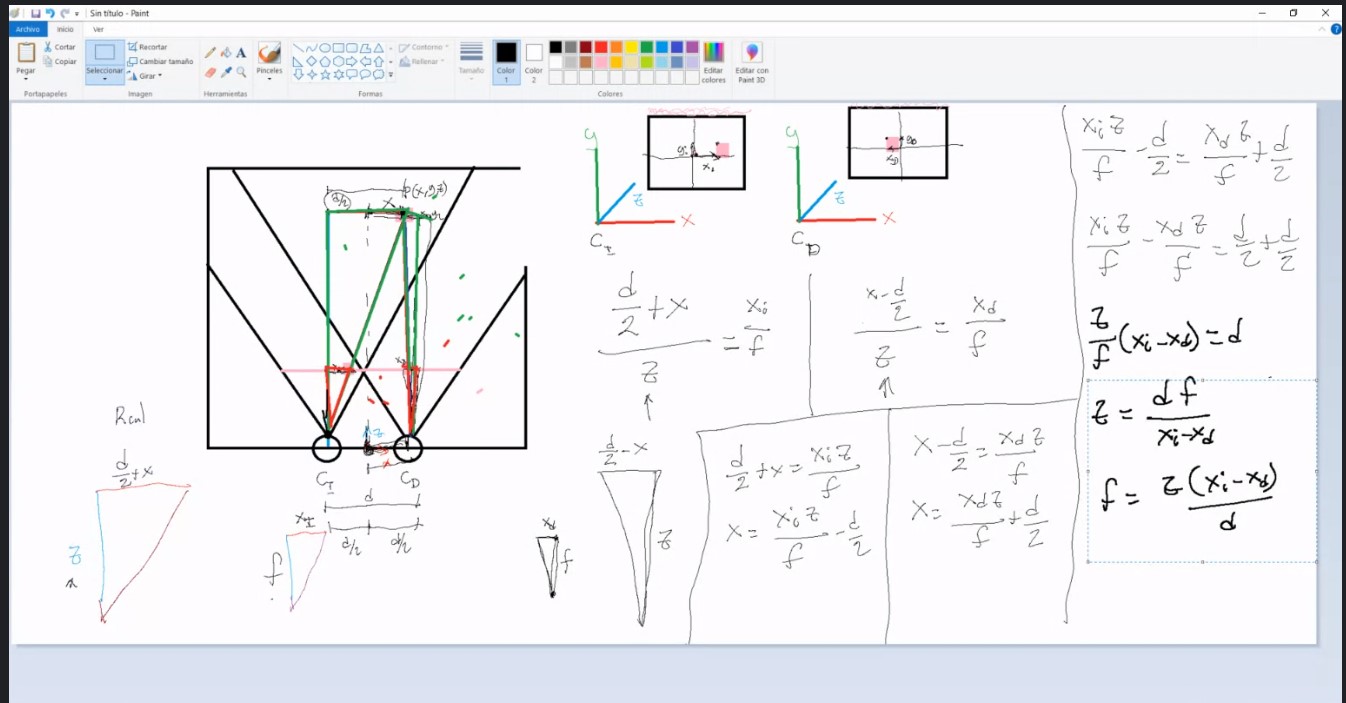 Sin título - Paint
Archivo Inicio Ver
Pegar
Cortar
Copiar
Portapapeles
Seleccionar
Recortar
Cambiar tamaño
Girar
Imagen
A
Herramientas
Pinceles
Contorno
Rellenar
Formas
Tamaño
Color 1
Color 2
Editar colores
Colores
Editar con Paint 3D
d/2
x
P(x,y,z)
z
x
C_I
C_D
d
d/2 d/2
Real
d/2 + x
z
x_I
f
x_d
f
d/2 - x
z
y
z
x
C_I
y_i
x_i
y
z
x
C_D
y_D
x_D
(d/2 + x)/z = x_i/f
(x - d/2)/z = x_d/f
d/2 + x = x_i z/f
x = x_i z/f - d/2
x - d/2 = x_d z/f
x = x_d z/f + d/2
x_i z/f - d/2 = x_d z/f + d/2
x_i z/f - x_d z/f = d/2 + d/2
z/f (x_i - x_d) = d
z = d f/(x_i - x_d)
f = z(x_i - x_d)/d